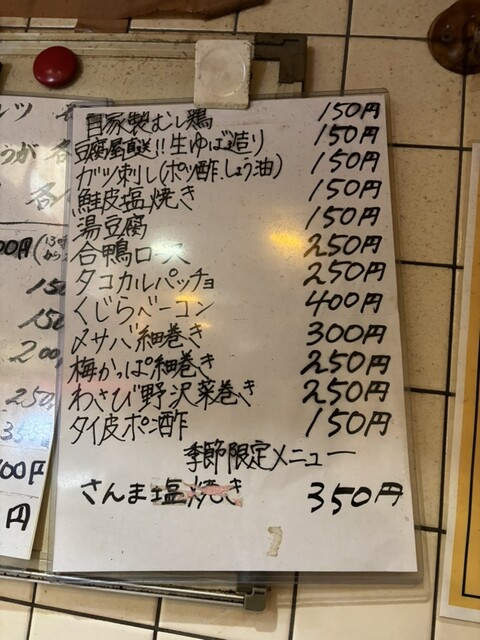 自家製むし鶏 150円
豆腐屋直送!!生ゆばお造り 150円
ガツ刺し(ポン酢.しょう油) 150円
鮭皮塩焼き 150円
湯豆腐 150円
合鴨ロース 250円
タコカルパッチョ 250円
くじらベーコン 400円
〆サバ細巻き 300円
梅かっぱ細巻き 250円
わさび野沢菜巻き 250円
タイ皮ポン酢 150円
季節限定メニュー
さんま塩焼き 350円